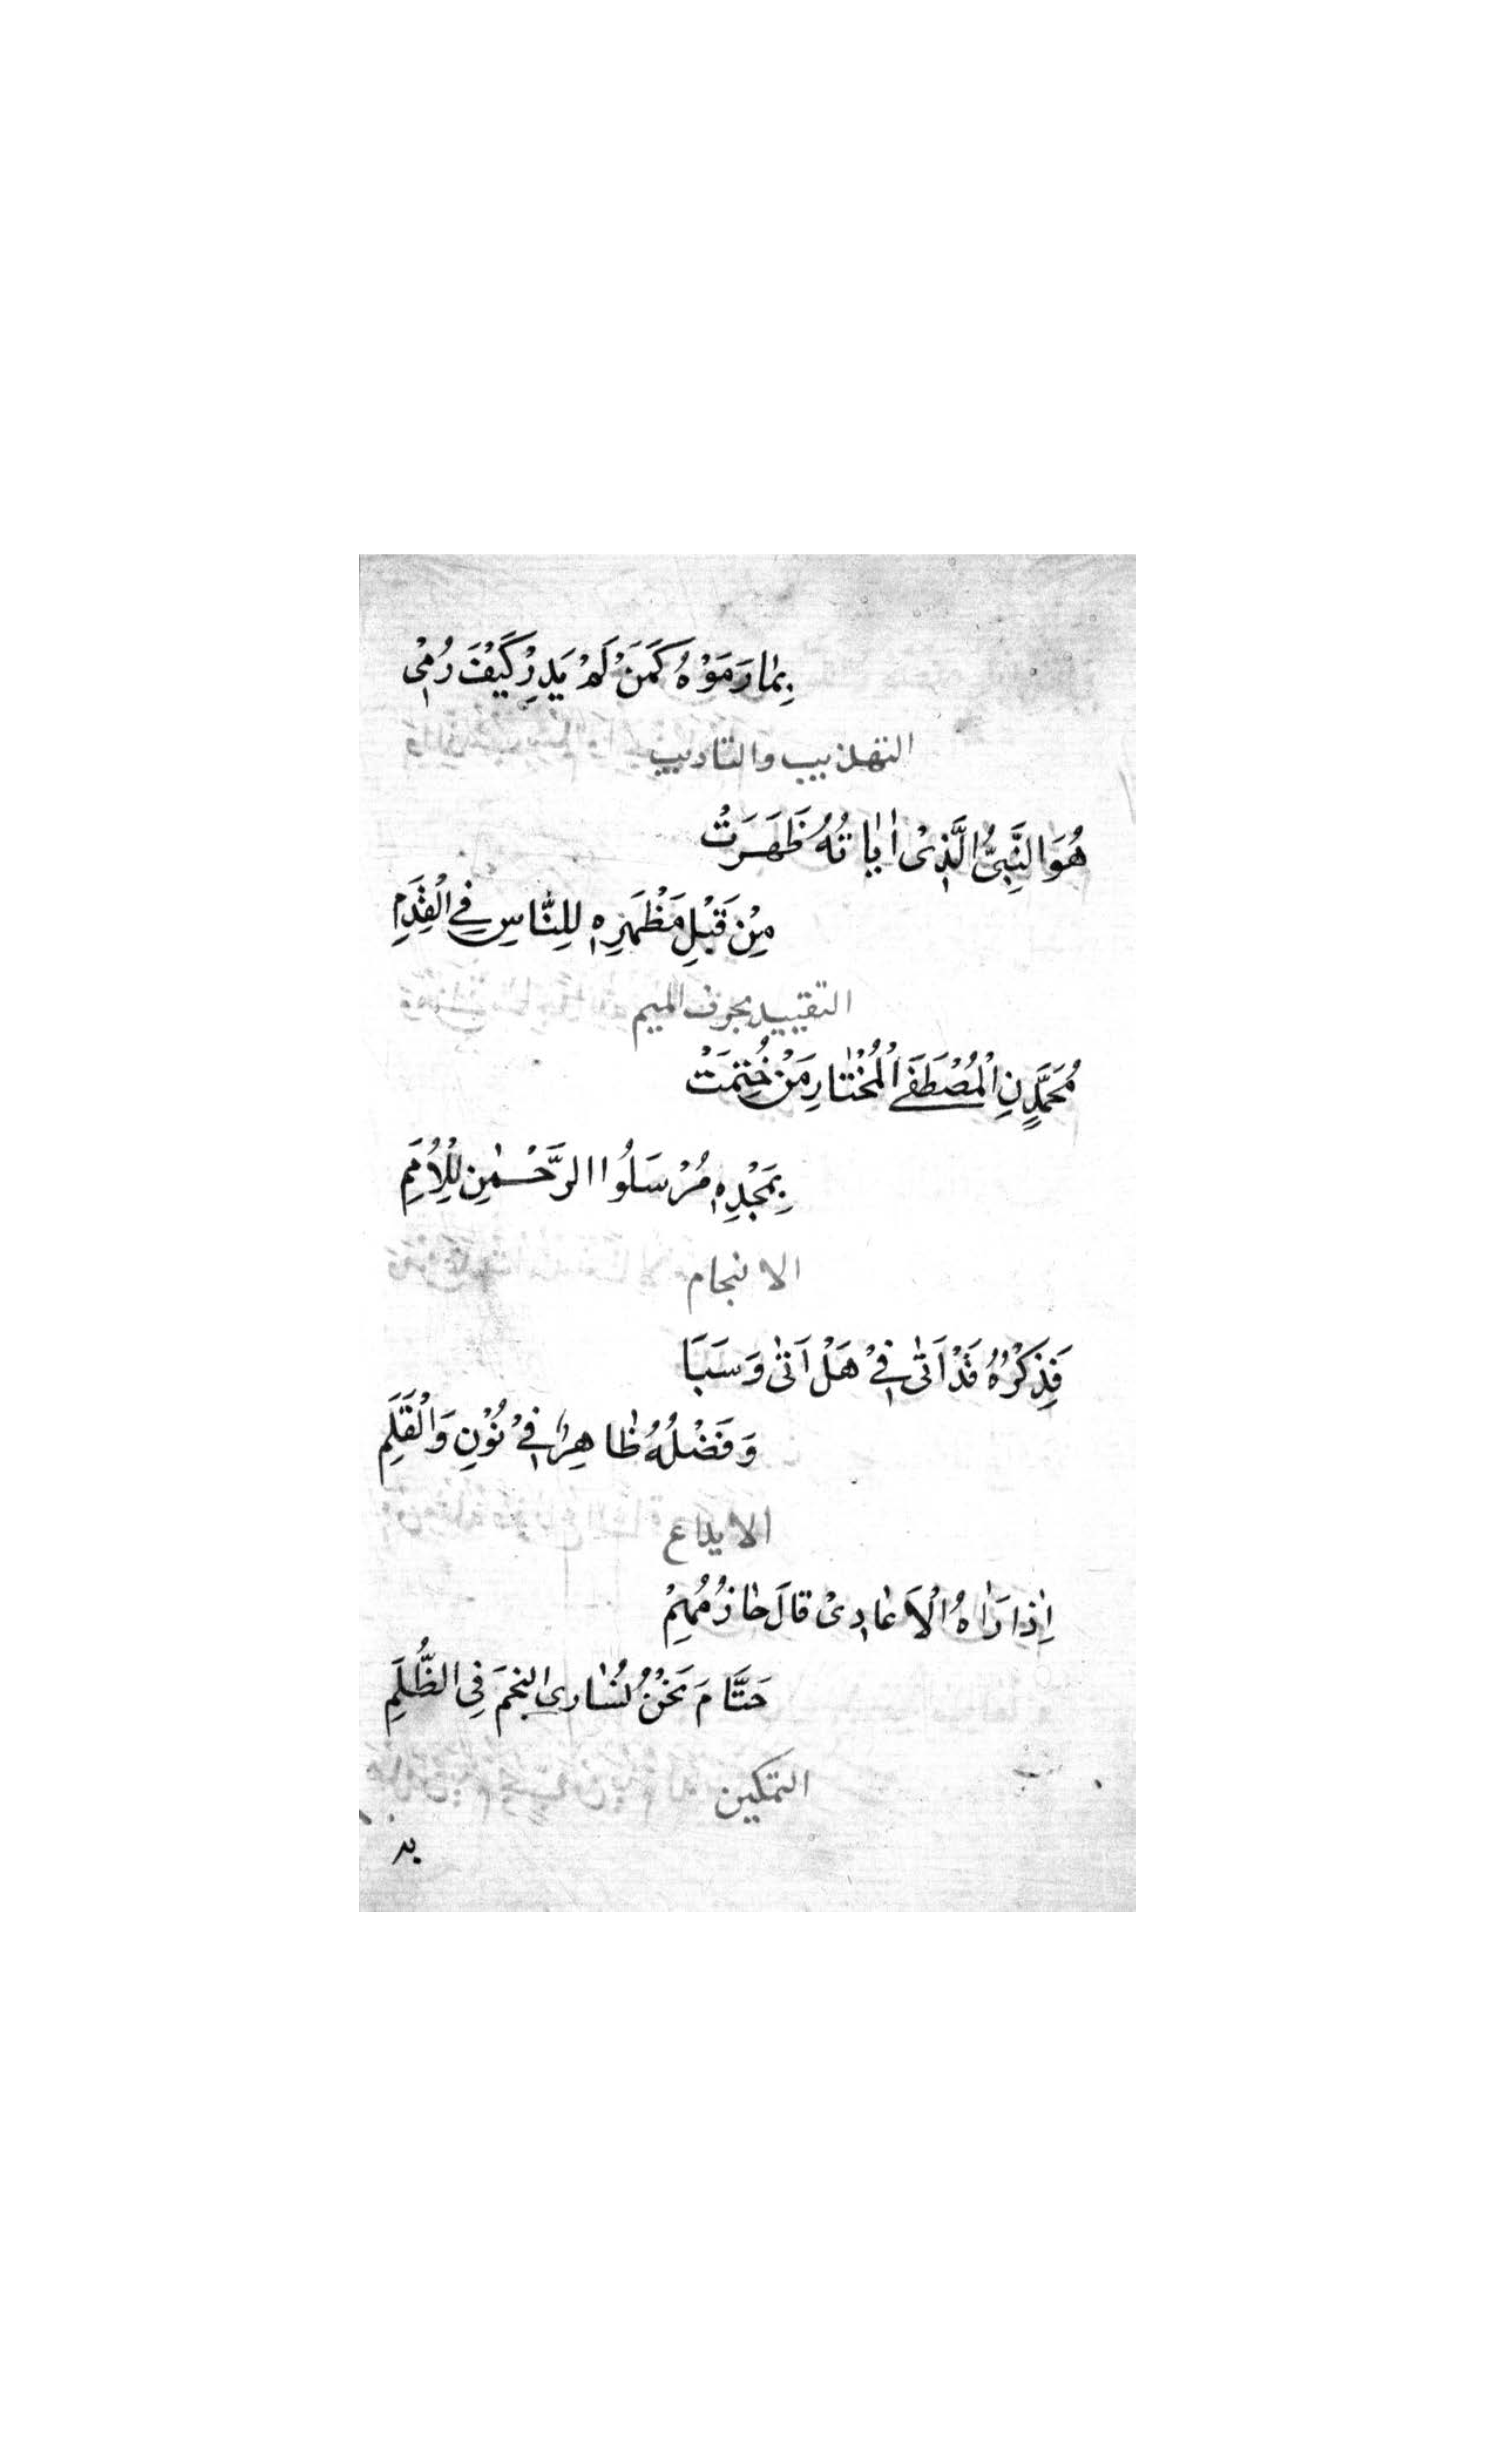 بِمَا رَمَوْهُ كَمَنْ لَمْ يَدِرْ كَيْفَ رُمِيْ
التهذيب والتاديب
هُوَ النَّبِيُّ الَّذِيْ اٰيَاتُهُ ظَهَرَتْ
مِنْ قَبْلِ مَظْهَرِهِ لِلنَّاسِ فِي الْقِدَمِ
التقييد بحرف الميم
مُحَمَّدٍ نِ الْمُصْطَفَى الْمُخْتَارِ مَنْ خُتِمَتْ
بِمَجْدِهِ مُرْسَلُوا الرَّحْمٰنِ لِلْاُمَمِ
الانجام
فَذِكْرُهُ قَدْ اَتٰى فِيْ هَلْ اَتٰى وَسَبَا
وَفَضْلُهُ ظَاهِرٌ فِيْ نُوْنِ وَالْقَلَمِ
الايداع
اِذَا رَاٰهُ الْاَعَادِيْ قَالَ حَازُمُهُمْ
حَتَّامَ نَحْنُ نُسَارِي النجمَ فِي الظُّلَمِ
التمكين
بد